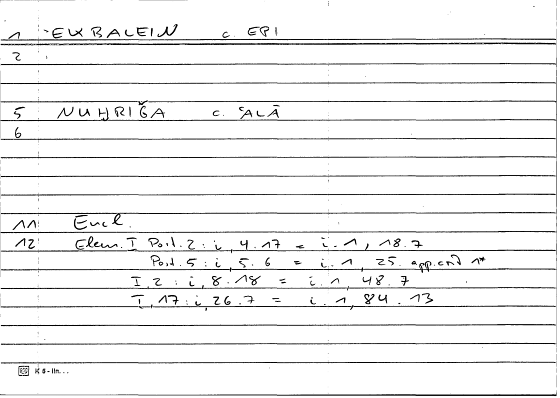 1 EKBALEIN c. EPI
2
5 NUḪRIǦA c. ʿALĀ
6
11 Eucl.
12 Elem. I Post. 2 : i, 4.17 = i.1, 18.7
Post. 5 : i, 5.6 = i.1, 25. app.crit 1*
I, 2 : i, 8.18 = i.1, 48.7
I, 17 : i, 26.7 = i.1, 84.13
K 5 - lin...